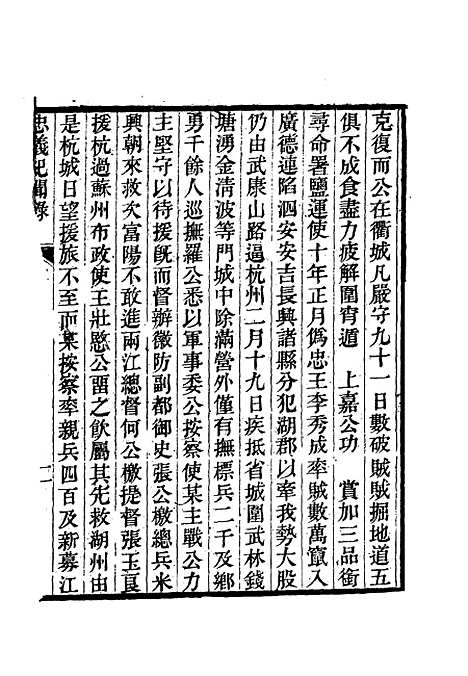 克復而公在衢城凡嚴守九十一日數破賊賊掘地道五
俱不成食盡力疲解圍宵遁　上嘉公功　賞加三品銜
尋命署鹽運使十年正月僞忠王李秀成率賊數萬竄入
廣德連陷泗安安吉長興諸縣分犯湖郡以牽我勢大股
仍由武康山路逼杭州二月十九日疾抵省城圍武林錢
塘湧金清波等門城中除滿營外僅有撫標兵二千及鄉
勇千餘人巡撫羅公悉以軍事委公按察使某主戰公力
主堅守以待援旣而督辦徽防副都御史張公檄總兵米
興朝來救次富陽不敢進兩江總督何公檄提督張玉良
援杭過蘇州布政使王壯愍公畱之飲屬其先救湖州由
是杭城日望援旅不至而某按察率親兵四百及新募江
忠義紀聞錄
二